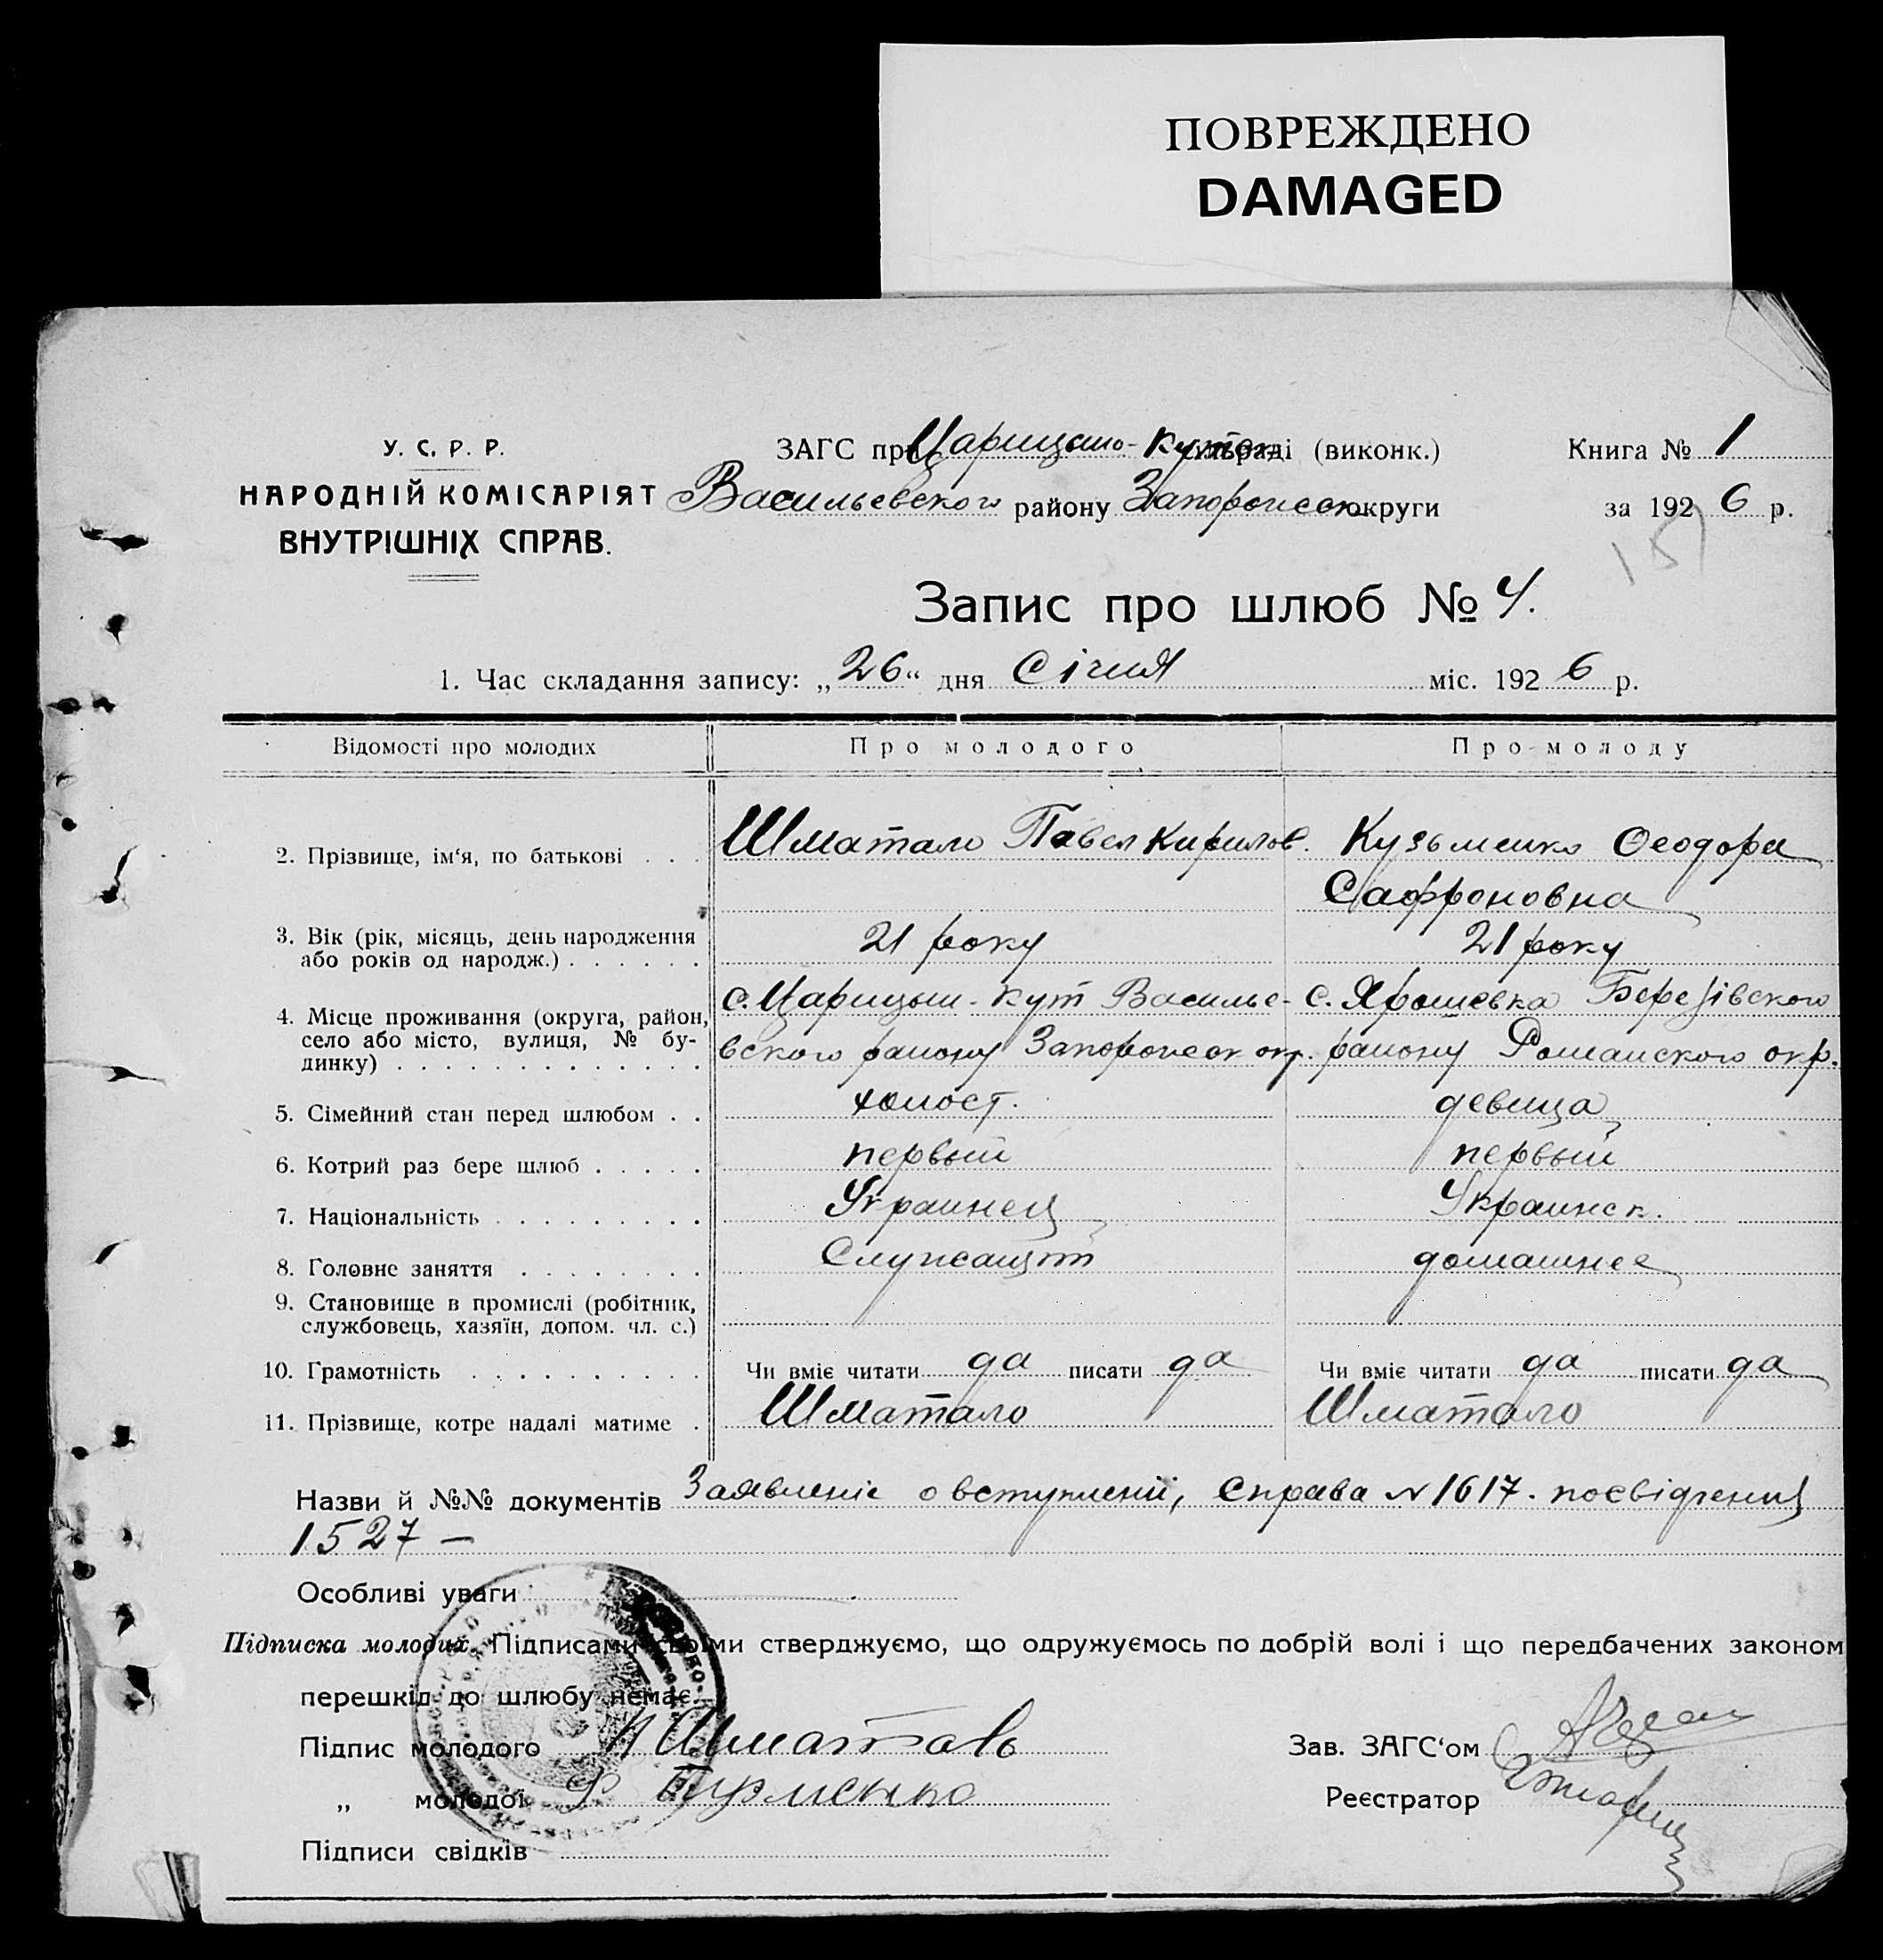 ПОВРЕЖДЕНО
DAMAGED
У. С. Р. Р.
НАРОДНІЙ КОМІСАРІЯТ
ВНУТРІШНІХ СПРАВ.
ЗАГС при Царицыно-Кутск раді (виконк.)
Васильевского району Запорожск округи
Книга № 1
за 1926 р.
Запис про шлюб № 4.
1. Час складання запису: „26“ дня Січня міс. 1926 р.
Відомості про молодих
Про молодого
Про молоду
2. Прізвище, ім‘я, по батькові . . .
Шматало Павел Кирилов.
Кузьменко Феодора
Сафроновна
3. Вік (рік, місяць, день народження
або років од народж.) . . . . . .
21 року
21 року
4. Місце проживання (округа, район,
село або місто, вулиця, № бу-
динку) . . . . . . . . . . . . .
с. Царицын-Кут Василье-
вского району Запорожск окр.
с. Ярошевка Березівского
району Роменского окр.
5. Сімейний стан перед шлюбом . .
холост.
девица
6. Котрий раз бере шлюб . . . . .
первый
первый
7. Національність . . . . . . . . .
Украинец
Украинск.
8. Головне заняття . . . . . . . .
Служащий
домашнее
9. Становище в промислі (робітник,
службовець, хазяїн, допом. чл. с.)
10. Грамотність . . . . . . . . . .
Чи вміє читати да писати да
Чи вміє читати да писати да
11. Прізвище, котре надалі матиме .
Шматало
Шматало
Назви й №№ документів Заявленіе о вступленії, справа N 1617. посвідчення
1527 —
Особливі уваги
Підписка молодих. Підписами своїми стверджуємо, що одружуємось по добрій волі і що передбачених законом
перешкід до шлюбу немає.
Підпис молодого
„ молодої
Підписи свідків
Зав. ЗАГС‘ом
Реєстратор